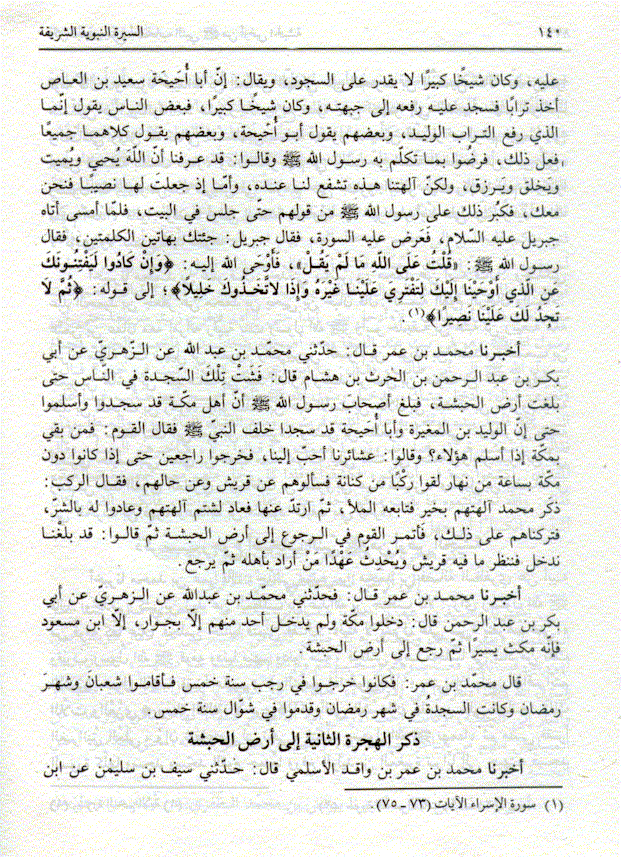 ١٤٠ السيرة النبوية الشريفة
عليه، وكان شيخًا كبيرًا لا يقدر على السجود، ويقال: إنّ أبا أُحَيحَة سعيد بن العاص
أخذ ترابًا فسجد عليه رفعه إلى جبهته، وكان شيخًا كبيرا، فبعض الناس يقول إنّما
الذي رفع التراب الوليد، وبعضهم يقول أبو أُحيحة، وبعضهم يقول كلاهما جميعًا
فعل ذلك، فرضُوا بما تكلّم به رسول الله ﷺ وقالوا: قد عرفنا أنّ اللَّهَ يُحيي ويُميت
ويَخلق ويَرزق، ولكنّ آلهتنا هذه تشفع لنا عنده، وأمّا إذ جعلتَ لها نصيبًا فنحن
معك، فكبُر ذلك على رسول الله ﷺ من قولهم حتّى جلس في البيت، فلمّا أمسى أتاه
جبريل عليه السّلام، فَعَرض عليه السورة، فقال جبريل: جئتك بهاتين الكلمتين، فقال
رسول الله ﷺ: «قُلْتُ عَلَى اللَّهِ مَا لَمْ يَقُلْ»، فأَوْحَى الله إليه: ﴿وَإنْ كَادُوا لَيَفْتِنُونَكَ
عَنِ الَّذي أَوْحَيْنا إلَيْكَ لِتَفْتَرِيَ عَلَيْنا غَيْرَهُ وَإِذًا لاتَّخَذُوكَ خَلِيلًا﴾؛ إلى قوله: ﴿ثُمَّ لَا
تَجِدُ لَكَ عَلَيْنا نَصِيرًا﴾(١).
أخبرنا محمد بن عمر قال: حدّثني محمّد بن عبد الله عن الزّهريّ عن أبي
بكر بن عبد الرحمن بن الخرث بن هشام قال: فَشَتْ تِلْكَ السّجدة في النّاس حتى
بلغت أرض الحبشة، فبلغ أصحابَ رسول الله ﷺ أنّ أهل مكّة قد سجدوا وأسلموا
حتى إنّ الوليد بن المغيرة وأبا أُحيحة قد سجدا خلف النبيّ ﷺ فقال القوم: فمن بقي
بمكّة إذا أسلم هؤلاء؟ وقالوا: عشائرنا أحبّ إلينا، فخرجوا راجعين حتى إذا كانوا دون
مكّة بساعة من نهار لقوا ركْبًا من كنانة فسألوهم عن قريش وعن حالهم، فقال الركب:
ذكَر محمد آلهتهم بخير فتابعه الملأ، ثمّ ارتدّ عنها فعاد لشتم آلهتهم وعادوا له بالشرّ،
فتركناهم على ذلك، فَأتمر القوم في الرجوع إلى أرض الحبشة ثمّ قالوا: قد بلغْنا
ندخل فننظر ما فيه قريش ويُحْدثُ عَهْدًا مَنْ أراد بأهله ثمّ يرجع.
أخبرنا محمد بن عمر قال: فحدّثني محمّد بن عبدالله عن الزهريّ عن أبي
بكر بن عبد الرحمن قال: دخلوا مكّة ولم يدخل أحد منهم إلّا بجوار، إلّا ابن مسعود
فإنّه مكث يسيرًا ثمّ رجع إلى أرض الحبشة.
قال محمّد بن عمر: فكانوا خرجوا في رجب سنة خمس فأقاموا شعبانَ وشهرَ
رمضان وكانت السجدةُ في شهر رمضان وقدموا في شوّال سنة خمس.
ذكر الهجرة الثانية إلى أرض الحبشة
أخبرنا محمد بن عمر بن واقد الأسلمي قال: حدّثني سيف بن سليمن عن ابن
(١) سورة الإسراء الآيات (٧٣ - ٧٥).